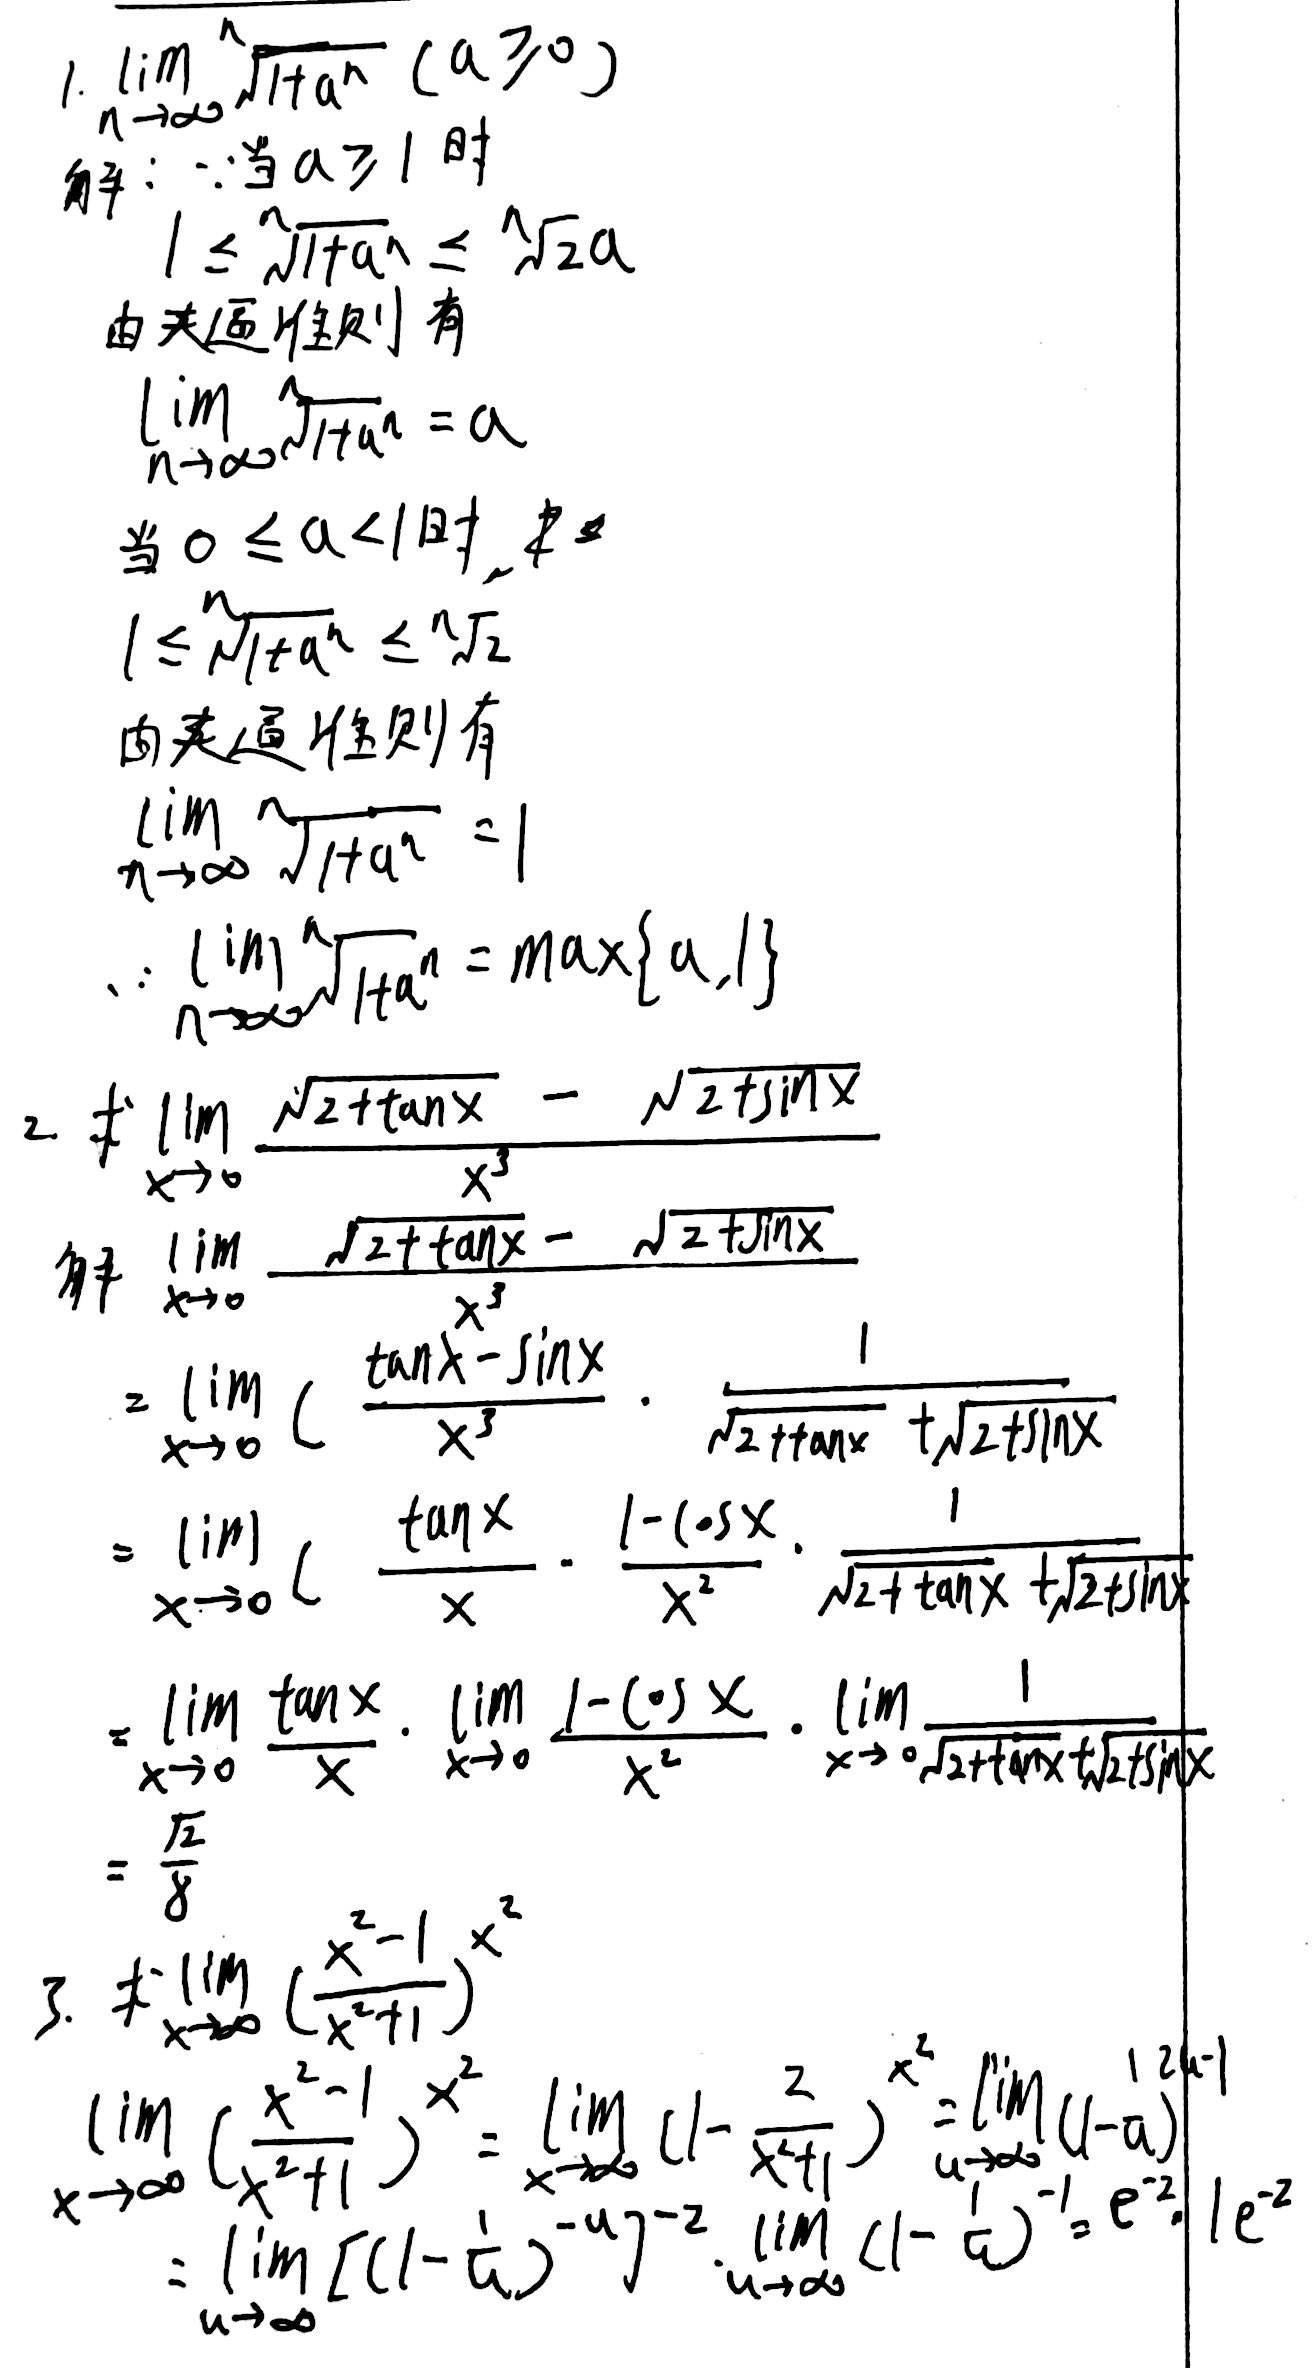 1. lim_{n→∞} ⁿ√(1+aⁿ) (a⩾0)
解: ∵当 a⩾1 时
1 ≤ ⁿ√(1+aⁿ) ≤ ⁿ√2 a
由夹逼准则有
lim_{n→∞} ⁿ√(1+aⁿ) = a
当 0 ≤ a < 1 时,
1 ≤ ⁿ√(1+aⁿ) ≤ ⁿ√2
由夹逼准则有
lim_{n→∞} ⁿ√(1+aⁿ) = 1
∵ lim_{n→∞} ⁿ√(1+aⁿ) = max{a,1}
2. 求 lim_{x→0} (√(2+tanx) - √(2+sinx))/x³
解 lim_{x→0} (√(2+tanx) - √(2+sinx))/x³
= lim_{x→0} ( (tanx-sinx)/x³ · 1/(√(2+tanx) + √(2+sinx))
= lim_{x→0} ( tanx/x · (1-cosx)/x² · 1/(√(2+tanx) + √(2+sinx))
= lim_{x→0} tanx/x · lim_{x→0} (1-cosx)/x² · lim_{x→0} 1/(√(2+tanx) + √(2+sinx))
= √2/8
3. 求 lim_{x→∞} ((x²-1)/(x²+1))^{x²}
lim_{x→∞} ((x²-1)/(x²+1))^{x²} = lim_{x→∞} (1 - 2/(x²+1))^{x²} = lim_{u→∞} (1 - 1/u)^{2u-1}
= lim_{u→∞} [(1 - 1/u)^{-u}]^{-2} · lim_{u→∞} (1 - 1/u)^{-1} = e^{-2} · 1 e^{-2}